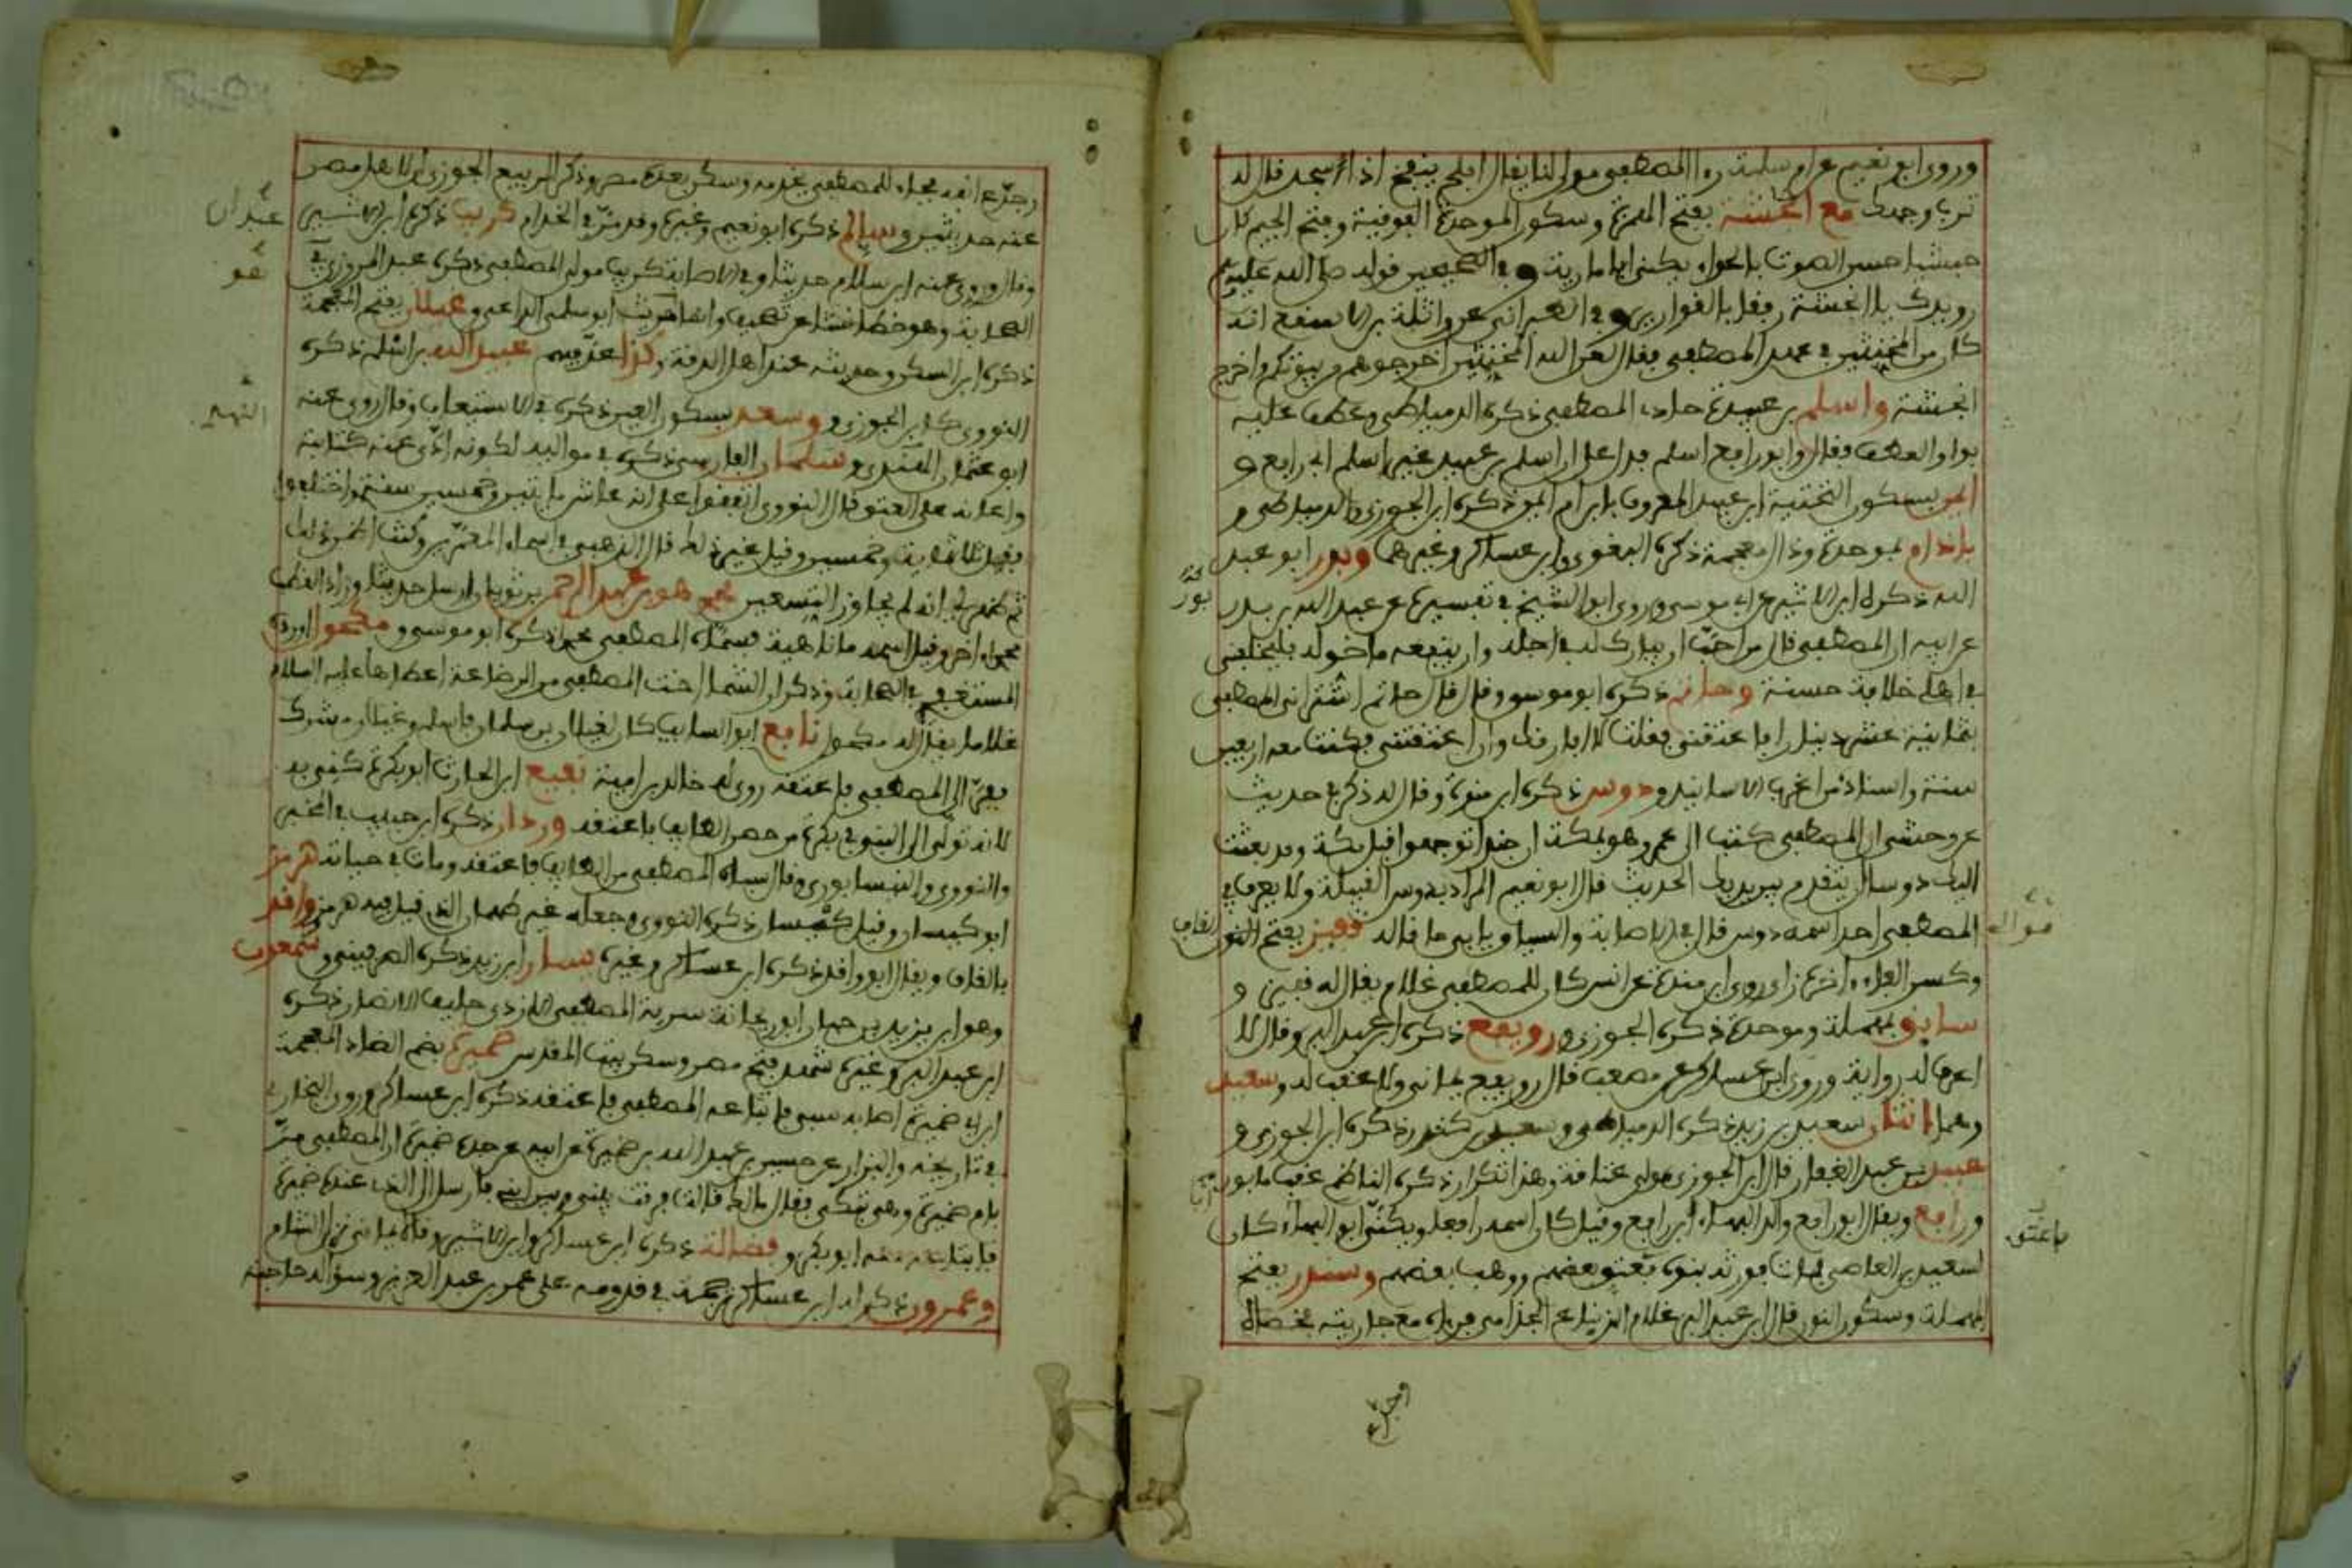 وروى ابو نعيم عن ام سلمة رءا المصطفى مولى لنا يقال افلح ينفخ اذا سجد فقال له
ترب وجهك مع انجشة بفتح الهمزة وسكون الموحدة الفوقية وفتح الجيم كان
حبشيا حسن الصوت بالحداء يكنى ابا مارية وفي الصحيحين قوله صلى الله عليه
رويدك يا انجشة رفقا بالقوارير وفي الطبراني عن واثلة بن الاسقع انه
كان من المخنثين في عهد المصطفى فقال لعن الله المخنثين اخرجوهم من بيوتكم واخرج
انجشة واسلم بن عبيدة حادي المصطفى ذكره الدمياطي وعطف عليه
بواو العطف فقال وابو رافع اسلم فدل على ان اسلم بن عبيد غير اسلم ابي رافع و
ايمن بسكون التحتية ابن عبيد المعروف بابن ام ايمن ذكره ابن الجوزي والدمياطي و
باذام بموحدة وذال معجمة ذكره البغوي وابن عساكر وغيرهما وبدر ابو عبد
الله ذكره ابن الاثير عن ابي موسى وروى ابو الشيخ في تفسيره عن عبد الله بن بدر
عن ابيه ان المصطفى قال من احب ان يبارك له في اجله وان ينفعه ما خوله فليخلفني
في اهلي خلافة حسنة وحاتم ذكره ابو موسى وقال قال حاتم اشتراني المصطفى
بثمانية عشر دينارا فاعتقني فقلت لا افارقك وان اعتقتني فكنت معه اربعين
سنة واسناده من اغرب الاسانيد ودوس ذكره ابن منده وقال له ذكر في حديث
عن وحشي ان المصطفى كتب الى عمر وهو بمكة ان جندا توجهوا قبل مكة وقد بعثت
اليك دوسا يتقدم بين يديك الحديث قال ابو نعيم المراد به دوس القبيلة ولا يعرف في
المصطفى احد اسمه دوس قال في الاصابة والسياق يابى ما قاله قفيز بفتح
وكسر الفاء وءاخره زاي روى ابن منده عن انس كان للمصطفى غلام يقال له قفيز و
سابق بمهملة وموحدة ذكره الجوزي ورويفع ذكره ابن عبد البر وقال لا
اعرف له رواية وروى ابن عساكر عن مصعب قال رويفع يماني ولا عقب له وسعيد
وهما اثنان سعيد بن زيد ذكره الدمياطي وسعيد بن كندير ذكره ابن الجوزي و
عبيد بن عبد الغفار قال ابن الجوزي مولى عتاقة وهذا تكرار ذكره الناظم عقب مابور
ورافع ويقال ابو رافع والد البهاء ابن رافع وقيل كان اسمه رافعا ويكنى ابو البهاء كان
لسعيد بن العاصي فمات فورثه بنوه فعتق بعضهم ووهب بعضهم وسندر بفتح
المهملة وسكون النون قال ابن عبد البر غلام لزنباع الجذامي قبل مع جاريته فخصاه
وجدع
وجدع انفه فجاء للمصطفى يخدمه وسكن بعده مصر وذكر الربيع الجوزي ان لاهل مصر
عنه حديثين وسالم ذكره ابو نعيم وغيره وقد مر في الخدام كريب ذكره ابن الاثير
وقال وروى عنه ابن سلام حديثا وفي الاصابة كريب مولى المصطفى ذكره عبد المروزي في
الصحابة وهو خطا نشا عن تصحيف وانما حريث ابو سلمى الراعي وغيلان بفتح المعجمة
ذكره ابن السكن وحديثه عند اهل الرقة وكذا عد فيهم عبيد الله بن اسلم ذكره
النووي كابن الجوزي وسعد بسكون العين ذكره في الاستيعاب وقال روى عنه
ابو عثمان النهدي وسلمان الفارسي ذكره في مواليه لكونه ادى عنه كتابته
واعانه على العتق قال النووي اتفقوا على انه عاش مايتين وخمسين سنة واختلفوا
فقيل ثلاثماية وخمسين وقيل غير ذلك قال الذهبي في اسماء المعمرين وكنت اظن ذلك
ثم ظهر لي انه لم يجاوز التسعين محمد هو عبد الرحمن بن ثوبان ارسل حديثا وزاد القطب
محمدا ءاخر وقيل اسمه ماناهية فسماه المصطفى محمدا ذكره ابو موسى ومكحول اورده
المستغفري في الصحابة وذكر ان الشيما اخت المصطفى من الرضاعة اعطاها عليه السلام
غلاما يقال له مكحول نافع ابو السايب كان لغيلان بن سلمان فاسلم وغيلان مشرك
ففر الى المصطفى فاعتقه روى له خالد بن امية نفيع ابن الحارث ابو بكرة كني به
لانه تدلى الى النبي في بكرة من حصن الطايف فاعتقه وردان ذكره ابن حبيب في المحبر
والنووي والنيسابوري وقال سباه المصطفى من الطايف فاعتقه ومات في حياته هرمز
ابو كيسان وقيل كيسان ذكره النووي وجعله غير طهمان الذي قيل فيه هرمز وافد
بالفاء ويقال ابو وافد ذكره ابن عساكر وغيره يسار ابن زيد ذكره الصريفيني وشمعون
وهو ابن يزيد بن حمار ابو ريحانة سرية المصطفى الازدي حليف الانصار ذكره
ابن عبد البر وغيره شهد فتح مصر وسكن بيت المقدس ضميرة بضم الضاد المعجمة
ابن ابي ضميرة اصابه سبي فابتاعه المصطفى فاعتقه ذكره ابن عساكر وروى البخاري
في تاريخه والبزار عن حسين بن عبد الله بن ضميرة عن ابيه عن جده ضميرة ان المصطفى مر
بام ضميرة وهي تبكي فقال مالك قالت فرقت بيني وبين ابني فارسل الى الذي عنده ضميرة
فابتاعه منه ابو بكر وفضالة ذكره ابن عساكر وابن الاثير وقال يماني نزل الشام
وعمرو ذكر له ابن عساكر ترجمة في قدومه على عمر بن عبد العزيز وسؤاله حاجته